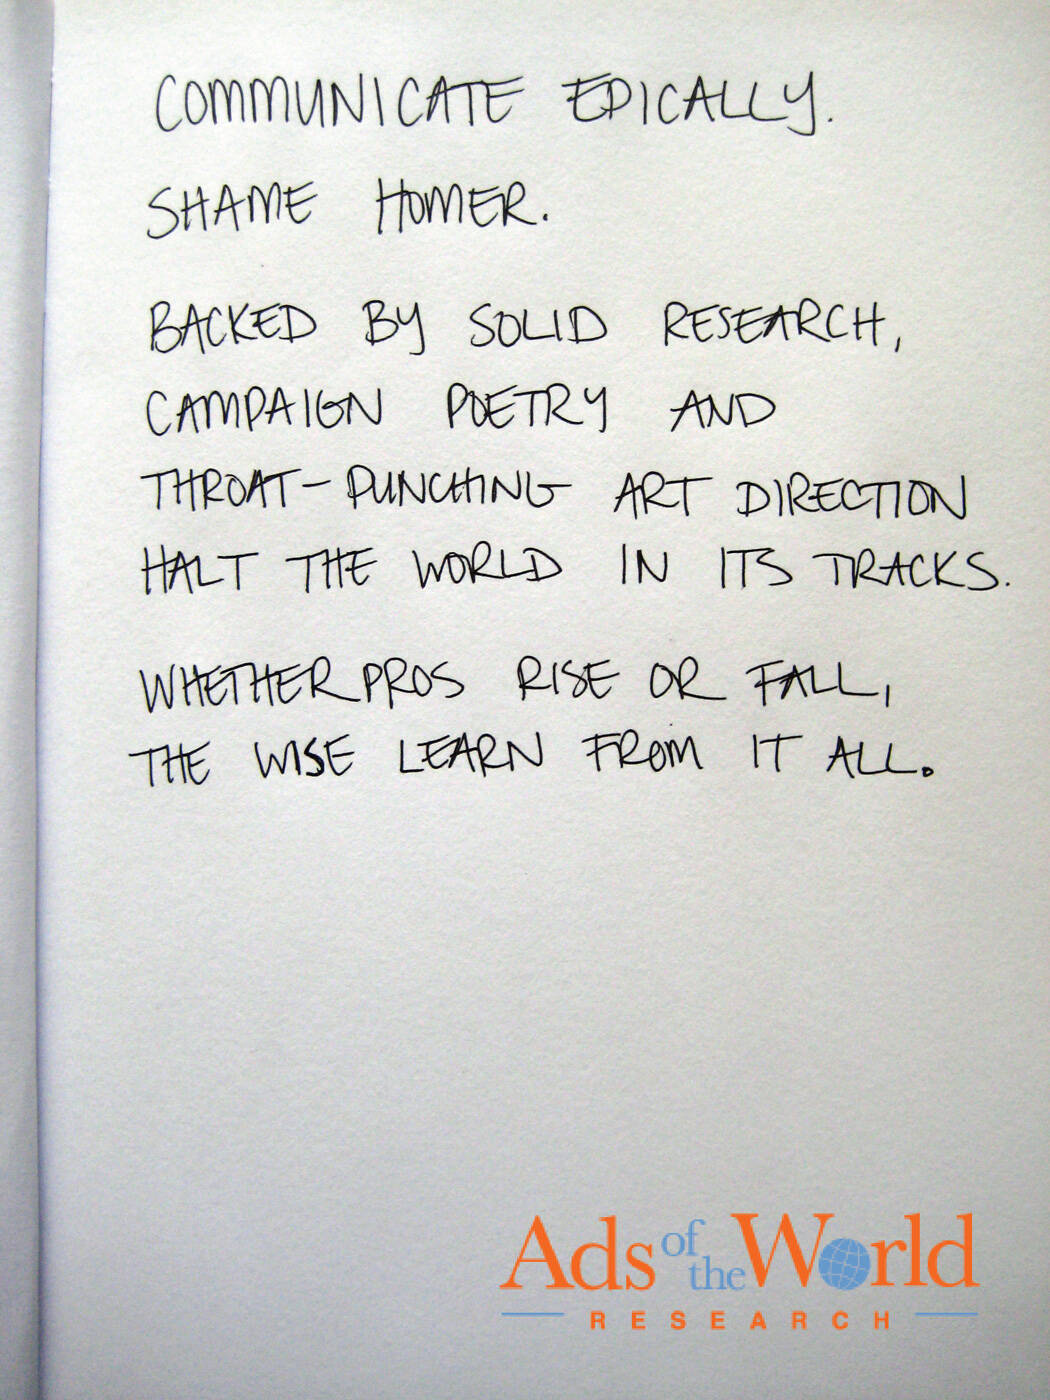 COMMUNICATE EPICALLY.
SHAME HOMER.
BACKED BY SOLID RESEARCH,
CAMPAIGN POETRY AND
THROAT-PUNCHING ART DIRECTION
HALT THE WORLD IN ITS TRACKS.
WHETHER PROS RISE OR FALL,
THE WISE LEARN FROM IT ALL.
Ads of the World
RESEARCH